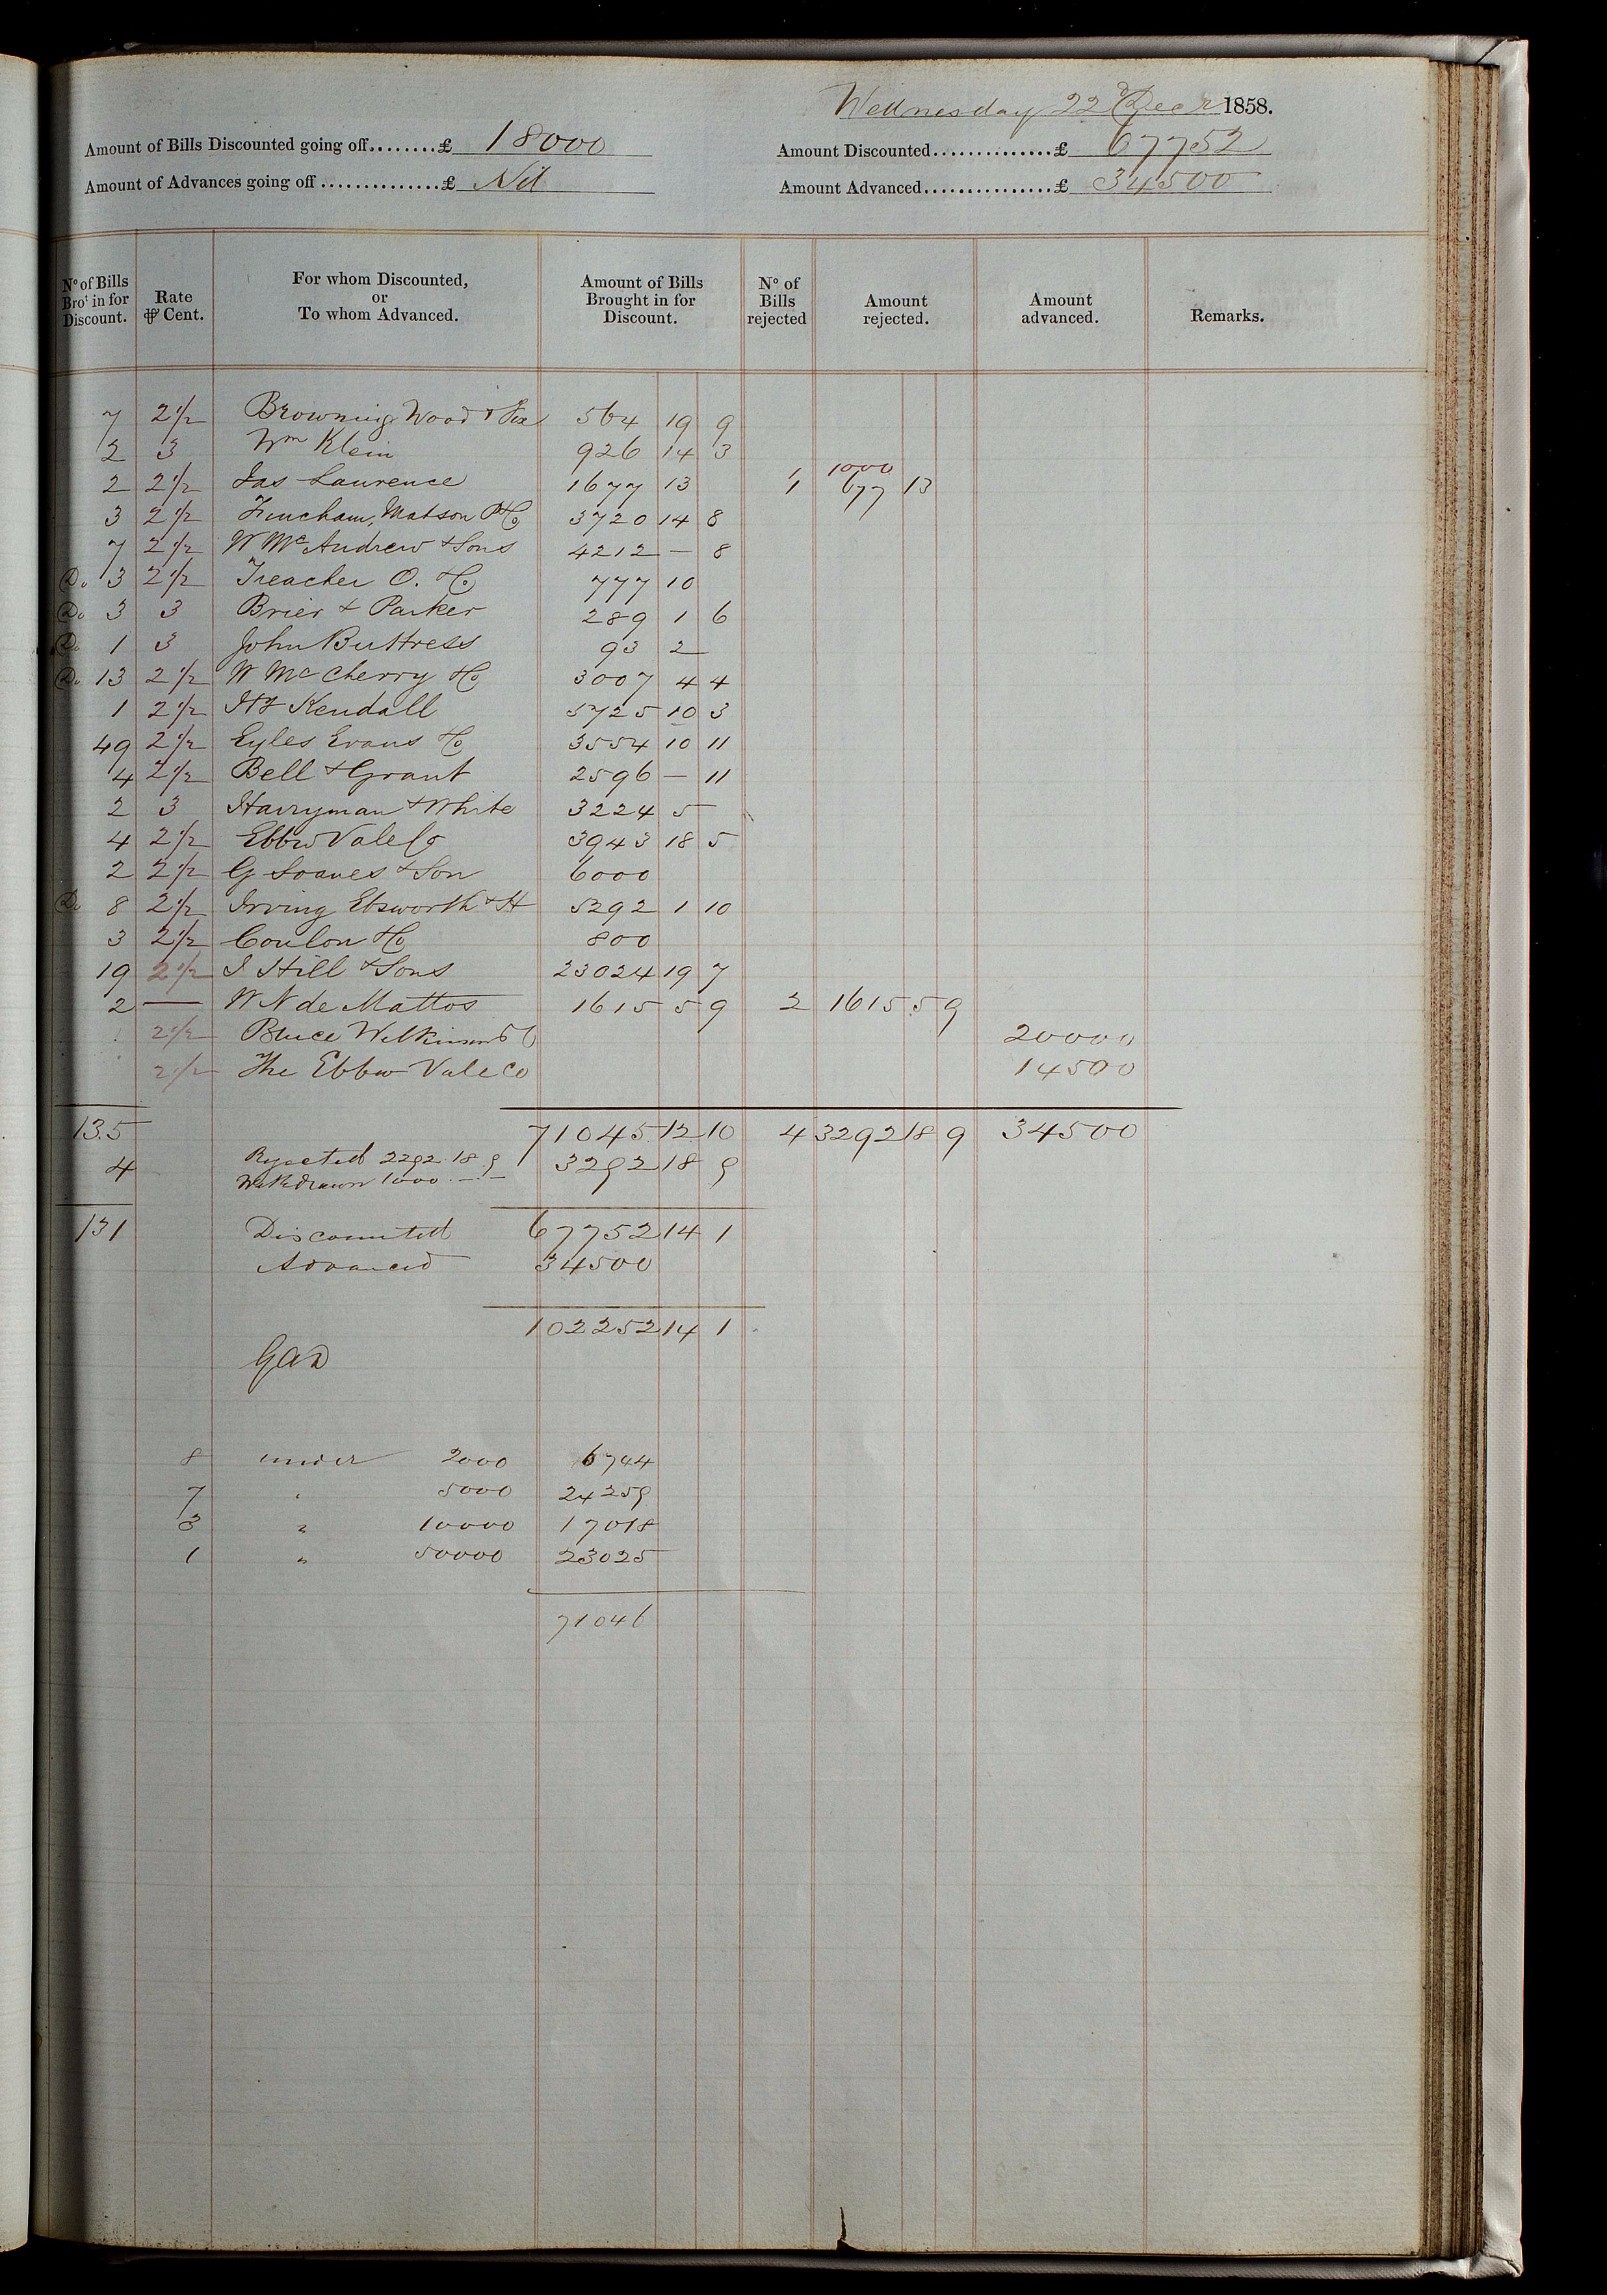 Wednesday 22d Decr 1858.
Amount of Bills Discounted going off........£ 18000 Amount Discounted..............£ 67752
Amount of Advances going off..............£ Nil Amount Advanced...............£ 34500
No of Bills Brot in for Discount. Rate ⅌ Cent. For whom Discounted, or To whom Advanced. Amount of Bills Brought in for Discount. No of Bills rejected Amount rejected. Amount advanced. Remarks.
7 2 1/2 Browning Wood & Fox 564 19 9
2 3 Wm Klein 926 14 3
1 1000
2 2 1/2 Jas Laurence 1677 13 1 677 13
3 2 1/2 Fincham, Matson & Co 3720 14 8
7 2 1/2 W McAndrew & Sons 4212 — 8
Do 3 2 1/2 Treacher O. & Co 777 10
Do 3 3 Brier & Parker 289 1 6
Do 1 3 John Buttress 93 2
Do 13 2 1/2 W McCherry & Co 3007 4 4
1 2 1/2 Kendall 5725 10 3
49 2 1/2 Eyles Evans & Co 3554 10 11
4 2 1/2 Bell & Grant 2596 — 11
2 3 Harryman & White 3224 5
4 2 1/2 Ebbw Vale Co 3943 18 5
2 2 1/2 G Soanes & Son 6000
Do 8 2 1/2 Irving Ebsworth & H 5292 1 10
3 2 1/2 Coulon & Co 800
19 2 1/2 J Hill & Sons 23024 19 7
2 — W N de Mattos 1615 5 9 2 1615 5 9
2 1/2 Bruce Wilkinson & Co 20000
2 1/2 The Ebbw Vale Co 14500
135 71045 12 10 4 3292 18 9 34500
4 Rejected 2292.18.9 3292 18 9
Withdrawn 1000.—.—
131 Discounted 67752 14 1
Advanced 34500
102252 14 1
8 under 2000 6744
7 " 5000 24259
3 " 10000 17018
1 " 50000 23025
71046